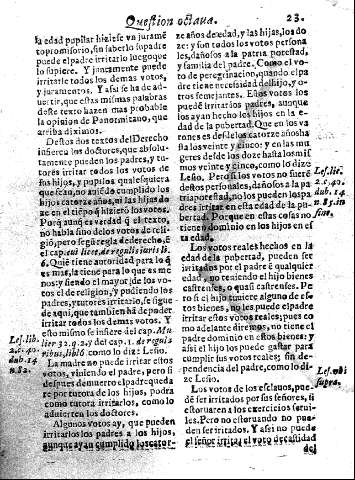 Question octava.
23.
la edad pupilar hiziese vn juramẽ
to promisorio, sin saberlo su padre
puede el padre irritarlo luego que
lo supiere. Y juntamente puede
irritarle todos los demas votos,
y juramentos. Y assi se ha de ad-
uertir, que estas mismas palabras
deste texto hazen mas probable
la opinion de Panormitano, que
arriba diximos.
Destos dos textos del Derecho
infieren los doctores, que absolu-
tamente pueden los padres, y tu-
tores irritar todos los votos de
sus hijos, y pupilos, qualesquiera
que sean, no auiẽdo cumplido los
hijos catorze años, ni las hijas do
ze en el tiẽpo q̃ hizierõ los votos.
Porq̃ aunq̃ es verdad q̃ el texto,
no habla sino de los votos de reli-
gió, pero segũ regla de derecho, ẽ
el cap. cui licet, de regulis iuris li.
6. Quiẽ tiene autoridad para lo q̃
es mas, la tiene para lo que es me
nos; y siendo el mayor de los vo-
tos el de religion, y pudiendo los
padres, y tutores irritarlo, se sigue
de aqui, que tambien hã de pader
irritar todos los demas votos. Y
esto mismo se infiere del cap. Mu-
lier 32. q. 2. y del cap. 1. de regula
ribus, lib. 6. como lo dize Lesio.
La madre no puede irritar estos
votos, viuiendo el padre, pero si
despues de muerto el padre queda
re por tutora de los hijos, podra
como tutora irritarlos, como lo
aduierten los doctores.
Algunos votos ay, que pueden
irritarlos los padres a los hijos,
aunque ayan cumplido los cator-
Les. lib.
2. c. 40.
dub. 14
n. 82.
ze años de edad, y las hijas, los do
ze: y son todos los votos persona
les, dañosos a la patria potestad,
y familia del padre. Como el vo-
to de peregrinacion, quando el pa
dre tiene necessidad del hijo, y o-
tros semejantes. Estos votos los
puede irritar los padres, aunque
los ayan hecho los hijos en la e-
dad de la pubertad. Que en los va
rones es desde los catorze años ha
sta los veinte y cinco: y en las mu
geres desde los doze hasta los mis
mos veinte y cinco, como lo dize
Lesio. Pero si los votos no fuerẽ
destos personales, dañosos a la pa
tria potestad, no los pueden los pa
dres irritar en esta edad de la pu-
bertad. Porque en estas cosas no
tienen dominio en los hijos en es
ta edad.
Los votos reales hechos en la
edad de la pubertad, pueden ser
irritados por el padre ẽ qualquier
edad, no teniendo el hijo bienes
castrenses, o quasi castrenses. Pe
ro si el hijo tuuiere alguno de es-
tos bienes, no los puede el padre
irritar estos votos reales; pues co
mo adelante diremos, no tiene el
padre dominio en estos bienes: y
assi el hijo los puede gastar para
cumplir sus votos reales; sin de-
pendencia del padre, como lo di-
ze Lesio.
Los votos de los esclauos, pue-
dẽ ser irritados por sus señores, si
estoruaren a los exercicios serui-
les. Pero no estoruando no pue-
den ser irritados. Y assi no puede
el señor irritar el voto de castidad
del
Les. lib.
2. c. 40.
dub. 14
n. 85. in
fine.
Les. vbi
supra.